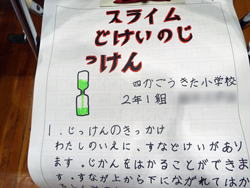 スライム
どけいのじ
っけん
四かごうきた小学校
2年1組
1.じっけんのきっかけ
わたしのいえに、すなどけいがあり
ます。じかんをはかることができま
す。すなが上から下にながれてはか